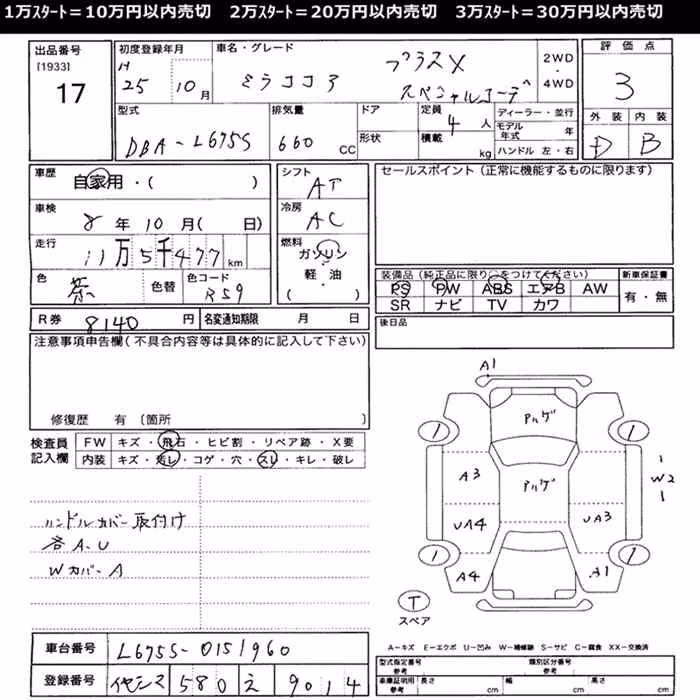 1万ｽﾀｰﾄ＝10万円以内売切　2万ｽﾀｰﾄ＝20万円以内売切　3万ｽﾀｰﾄ＝30万円以内売切
出品番号
[1933]
17
初度登録年月
H
25 10月
車名・グレード
ミラココア プラスX
スペシャルコーデ
2WD
4WD
評価点
3
外装 内装
D B
型式
DBA-L675S
排気量
660 CC
ドア
形状
定員
4 人
積載
kg
ディーラー・並行
モデル年式 年
ハンドル 左・右
車歴
自家用・( )
車検
8年10月( 日)
走行
11万5千477km
色
茶
色替
色コード
R59
シフト
AT
冷房
AC
燃料
ガソリン
軽・油
( )
セールスポイント (正常に機能するものに限ります)
装備品 (純正品に限り○をつけてください)
PS PW ABS エアB AW
SR ナビ TV カワ
新車保証書
有・無
R券 8140 円
名変通知期限 月 日
後日品
注意事項申告欄 (不具合内容等は具体的に記入して下さい)
修復歴 有 〔箇所 〕
検査員
記入欄
FW キズ・飛石・ヒビ割・リペア跡・X要
内装 キズ・汚レ・コゲ・穴・スレ・キレ・破レ
ハンドルカバー取付け
各A-U
WカバーA
A1
アルゲ
A3
アルゲ
W2
UA4
UA3
A4
A1
T
スペア
A－キズ E－エクボ U－凹み W－補修跡 S－サビ C－腐食 XX－交換済
車台番号 L675S-0151960
登録番号 580 え 9014
型式指定番号
参考
類別区分番号
参考
車庫証明用
参考
長さ cm 幅 cm 高さ cm